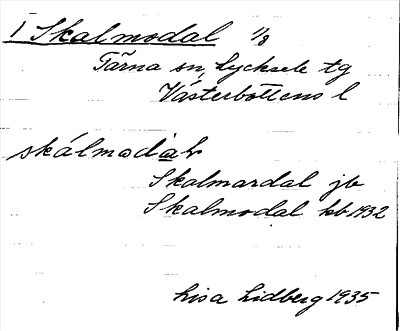 1 Skalmodal 1/8
Tärna sn, Lycksele tg
Västerbottens l
skálmodalʼ
Skalmardal jb
Skalmodal kb 1932
Lisa Lidberg 1935